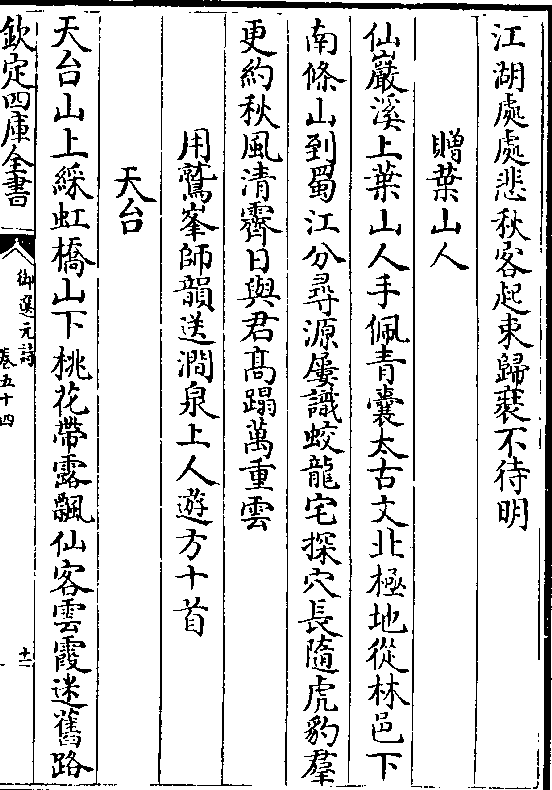 江湖處處悲秋客起束歸裝不待明
贈葉山人
仙巖溪上葉山人手佩青囊太古文北極地從林邑下
南條山到蜀江分尋源屢識蛟龍宅探穴長隨虎豹羣
更約秋風清霽日與君髙蹋萬重雲
用鷲峯師韻送澗泉上人遊方十首
天台
天台山上綵虹橋山下桃花帶露飄仙客雲霞迷舊路
欽定四庫全書
御選元詩
卷五十四
十二